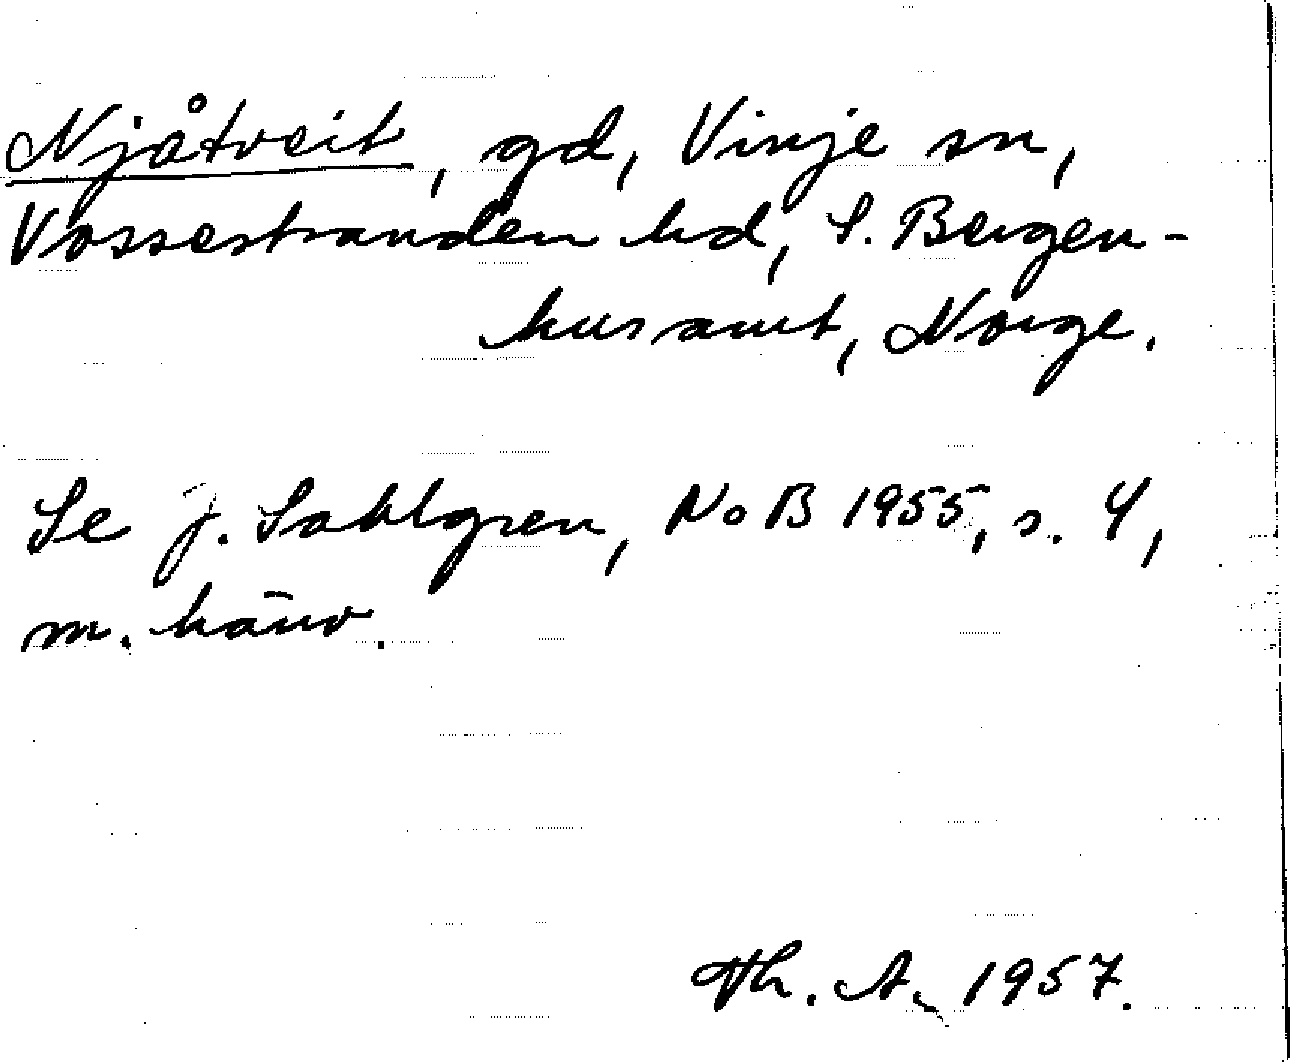 Njåtveit, gd, Vinje sn,
Vossestranden hd, S. Bergen-
hus amt, Norge.
Se J. Sahlgren, NoB 1955, s. 4,
m. hänv.
Th. A. 1957.